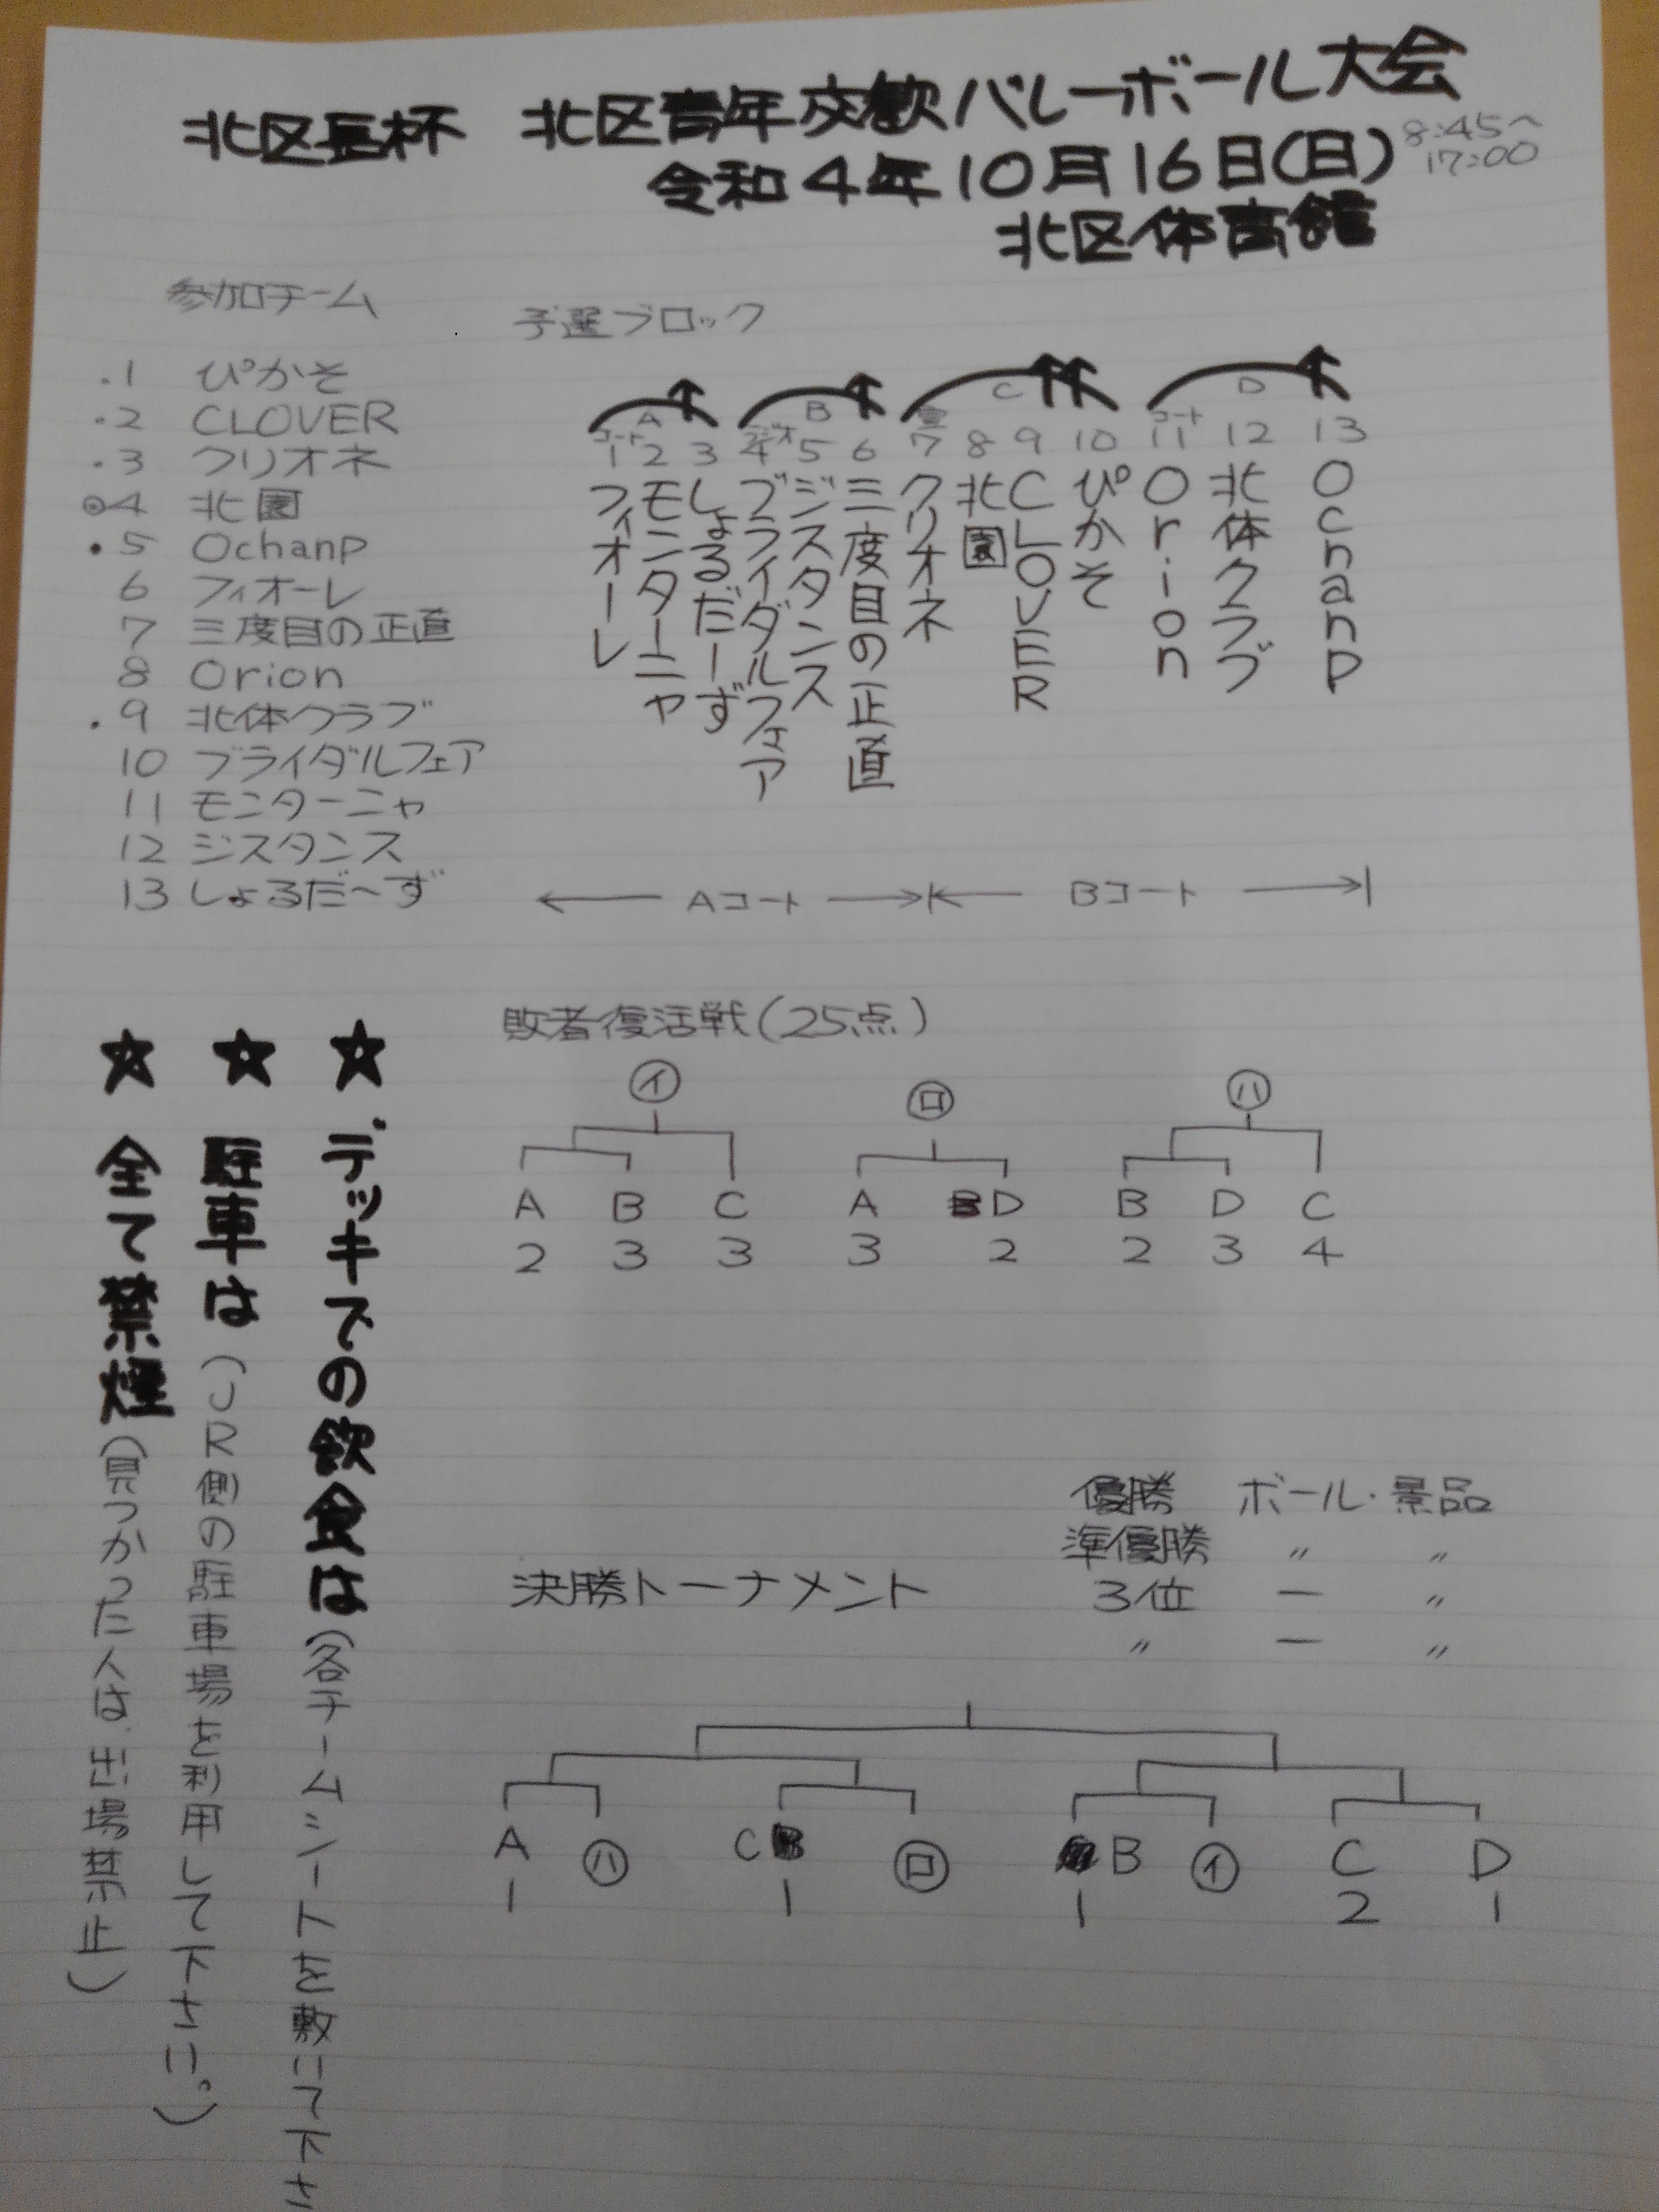 北区長杯 北区青年交歓バレーボール大会
令和4年10月16日(日) 8:45〜
17:00
北区体育館
参加チーム
・1 ぴかそ
・2 CLOVER
・3 クリオネ
◎4 北園
・5 Ochanp
6 フィオーレ
7 三度目の正直
8 Orion
・9 北体クラブ
10 ブライダルフェア
11 モンターニャ
12 ジスタンス
13 しょるだ〜ず
予選ブロック
A B C D
1 2 3 4 5 6 7 8 9 10 11 12 13
フィオーレ
モンターニャ
しょるだーず
ブライダルフェア
ジスタンス
三度目の正直
クリオネ
北園
CLOVER
ぴかそ
Orion
北体クラブ
Ochanp
Aコート Bコート
敗者復活戦(25点)
㋑ ㋺ ㋩
A B C A D B D C
2 3 3 3 2 2 3 4
優勝 ボール・景品
準優勝 〃 〃
3位 ー 〃
〃 ー 〃
決勝トーナメント
A ㋩ C ㋺ B ㋑ C D
1 1 1 2 1
☆デッキでの飲食は(各チームシートを敷いて下さ
☆駐車は(JR側の駐車場を利用して下さい。)
☆全て禁煙(見つかった人は、出場禁止)